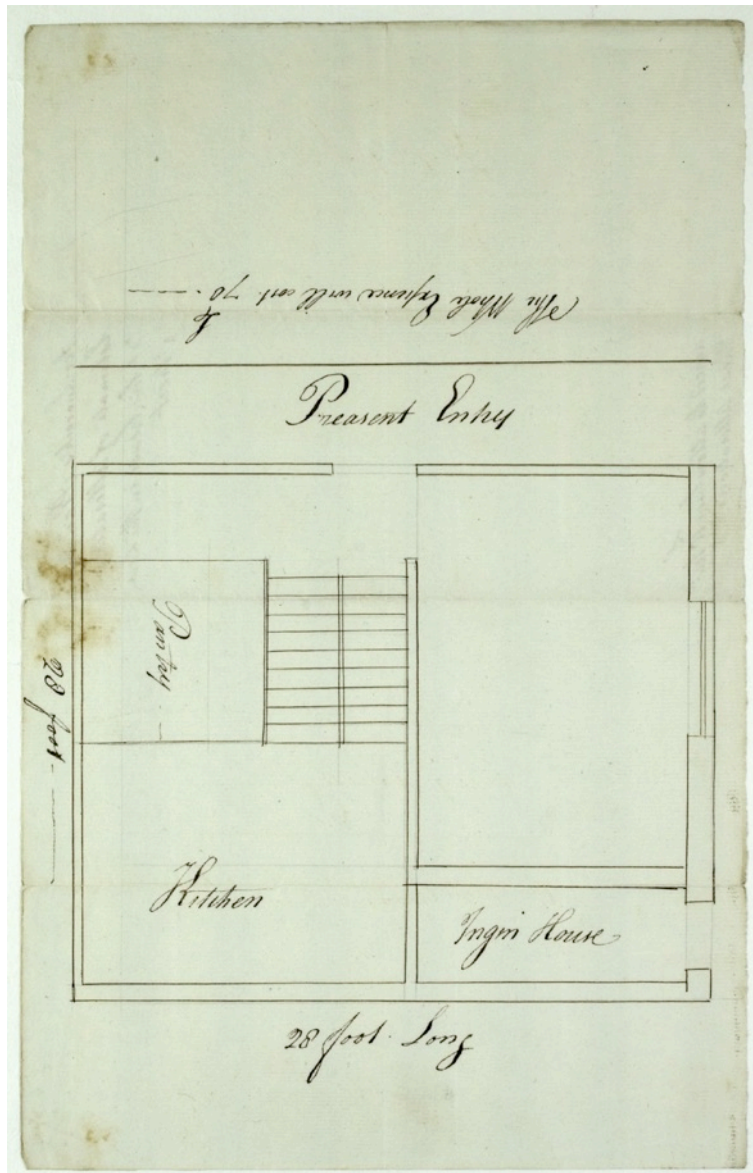 The Whole Expence will cost £70.
Preasent Entry
Pantry
28 foot
Kitchen
Ingin House
28 foot. Long